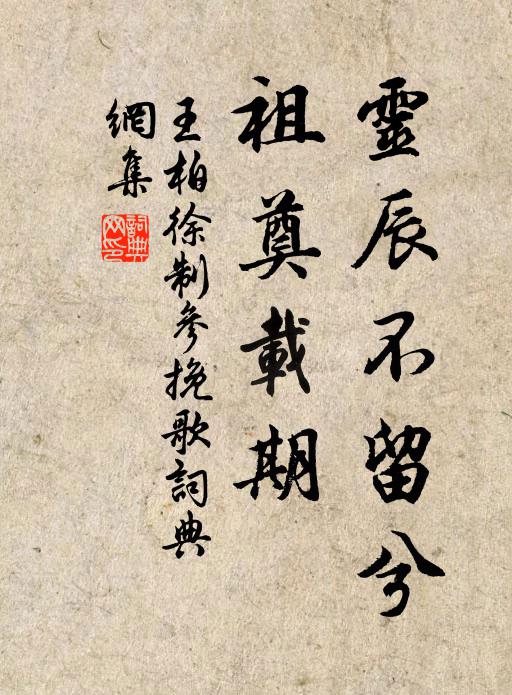 靈辰不留兮
祖奠載期
王柏徐制參挽歌詞典
網集
詞典网印